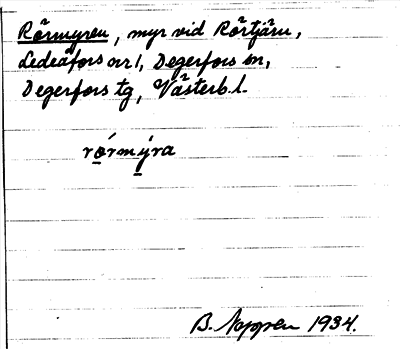 Rörmyren, myr vid Rörtjärn,
Ledeåfors by, Degerfors sn,
Degerfors tg, Västerb. l.
rǫ́rmýra
B. 1934.